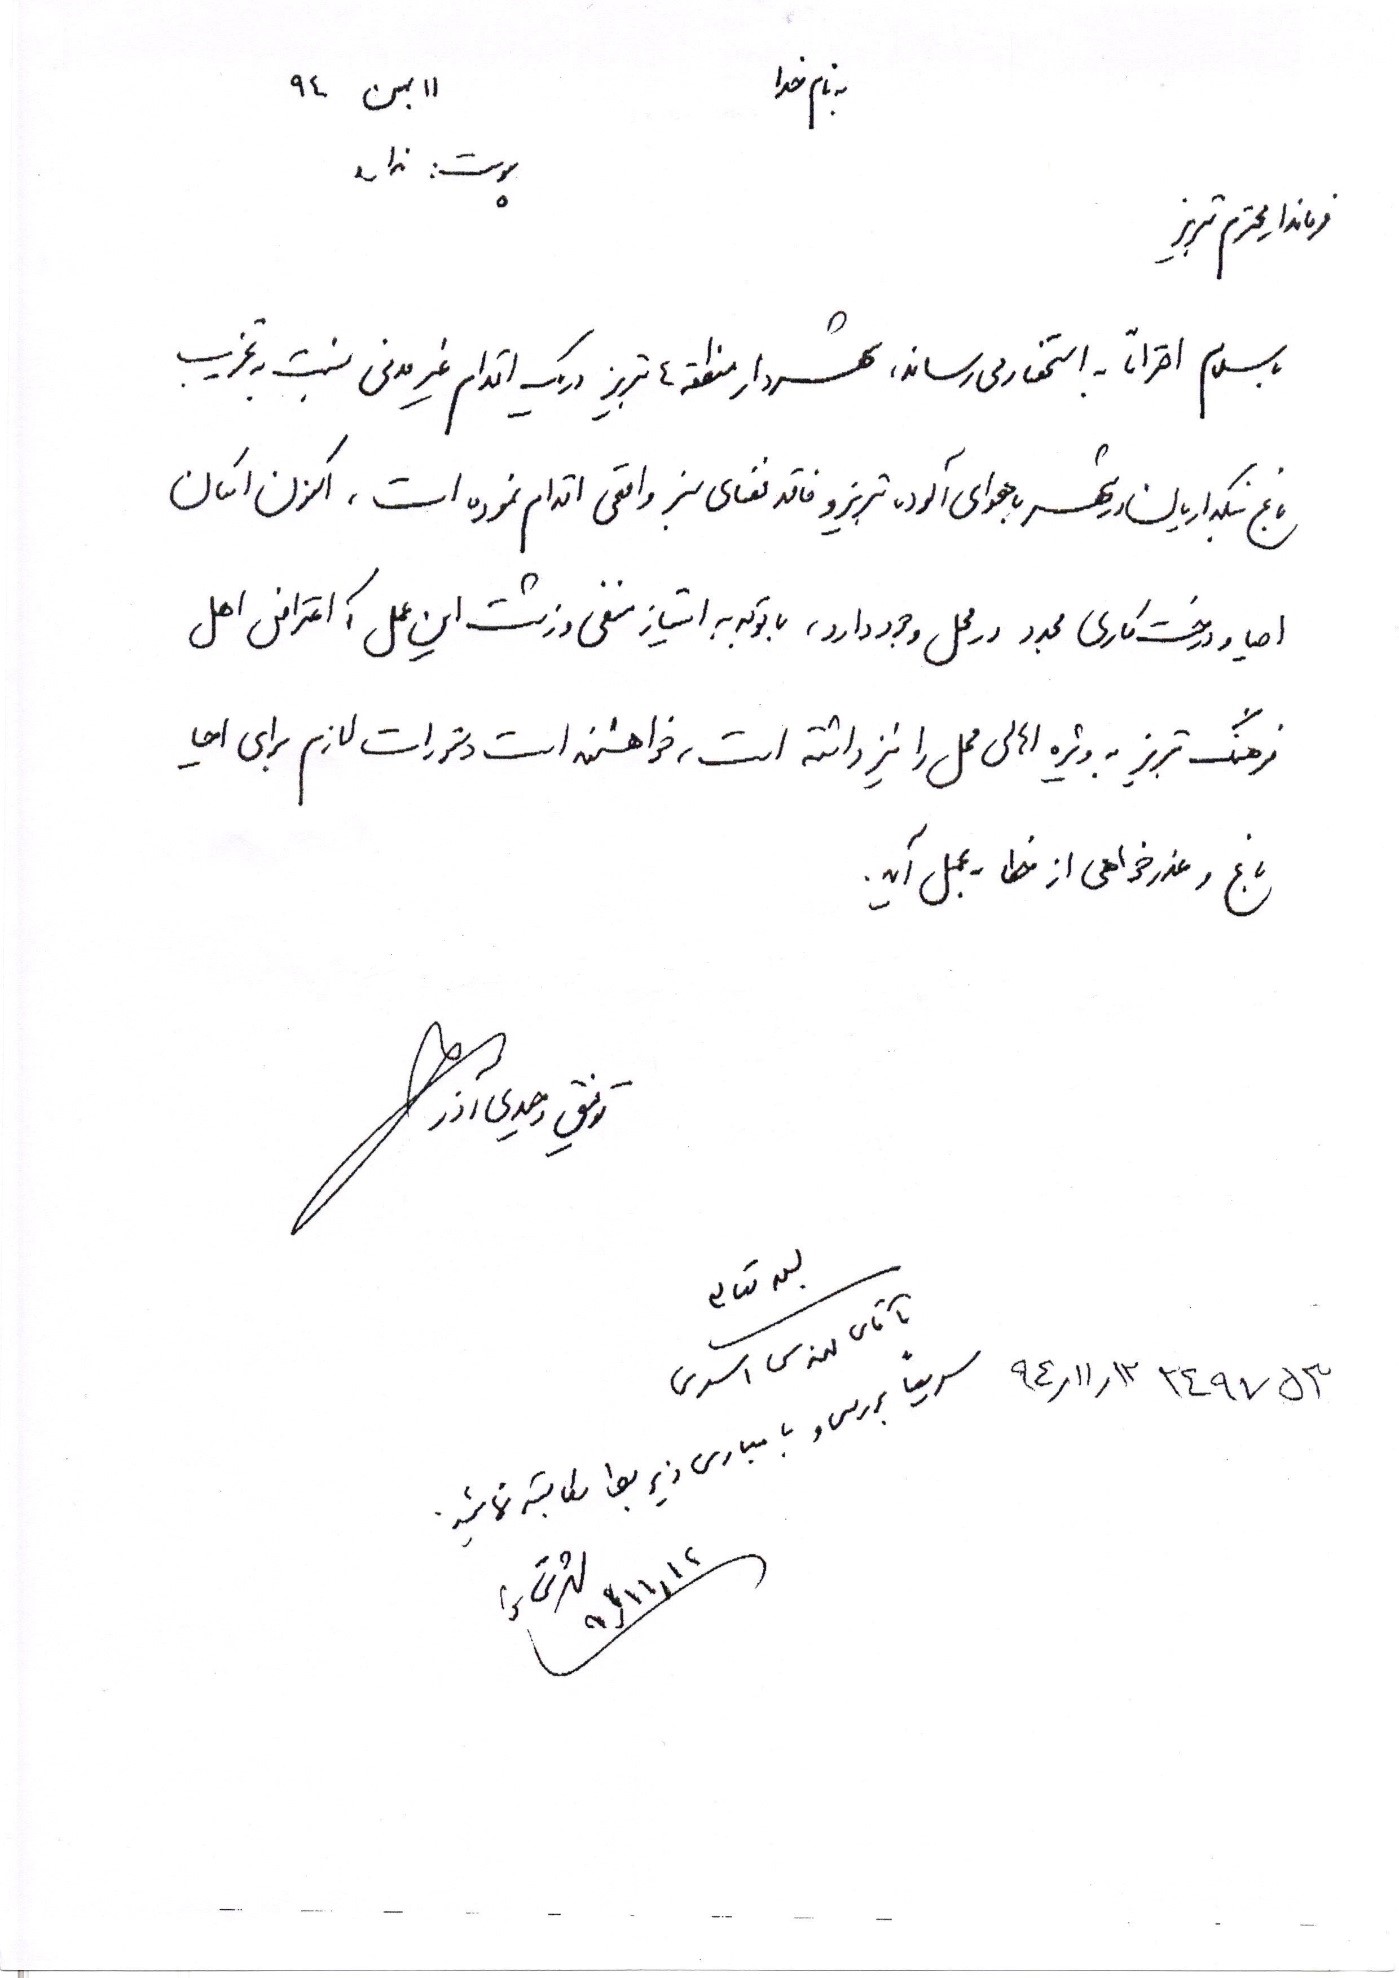 به نام خدا
۱۱ بهمن ۹۴
پیوست: ندارد
فرماندار محترم تبریز
با سلام احتراماً به استحضار می رساند، شهردار منطقه ۴ تبریز در یک اقدام غیر مدنی نسبت به تخریب
باغ در شهر با هوای آلوده تبریز و فاقد فضای سبز واقعی اقدام نموده است، اکنون امکان
احیا و درخت کاری مجدد در محل وجود دارد، با توجه به امتیاز منفی و زشت این عمل که اعتراض اهل
فرهنگ تبریز به ویژه اهالی محل را نیز داشته است، خواهشمند است دستورات لازم برای احیا
باغ و عذرخواهی از خطا به عمل آید.
توفیق وحیدی آذر
بسمه تعالی
آقای مهندس اسدی
سریعاً بررسی و با مبادی ذیربط مکاتبه نمائید.
۹۴/۱۱/۱۲
۲۴۹۷۵۳ ۹۴/۱۱/۱۲